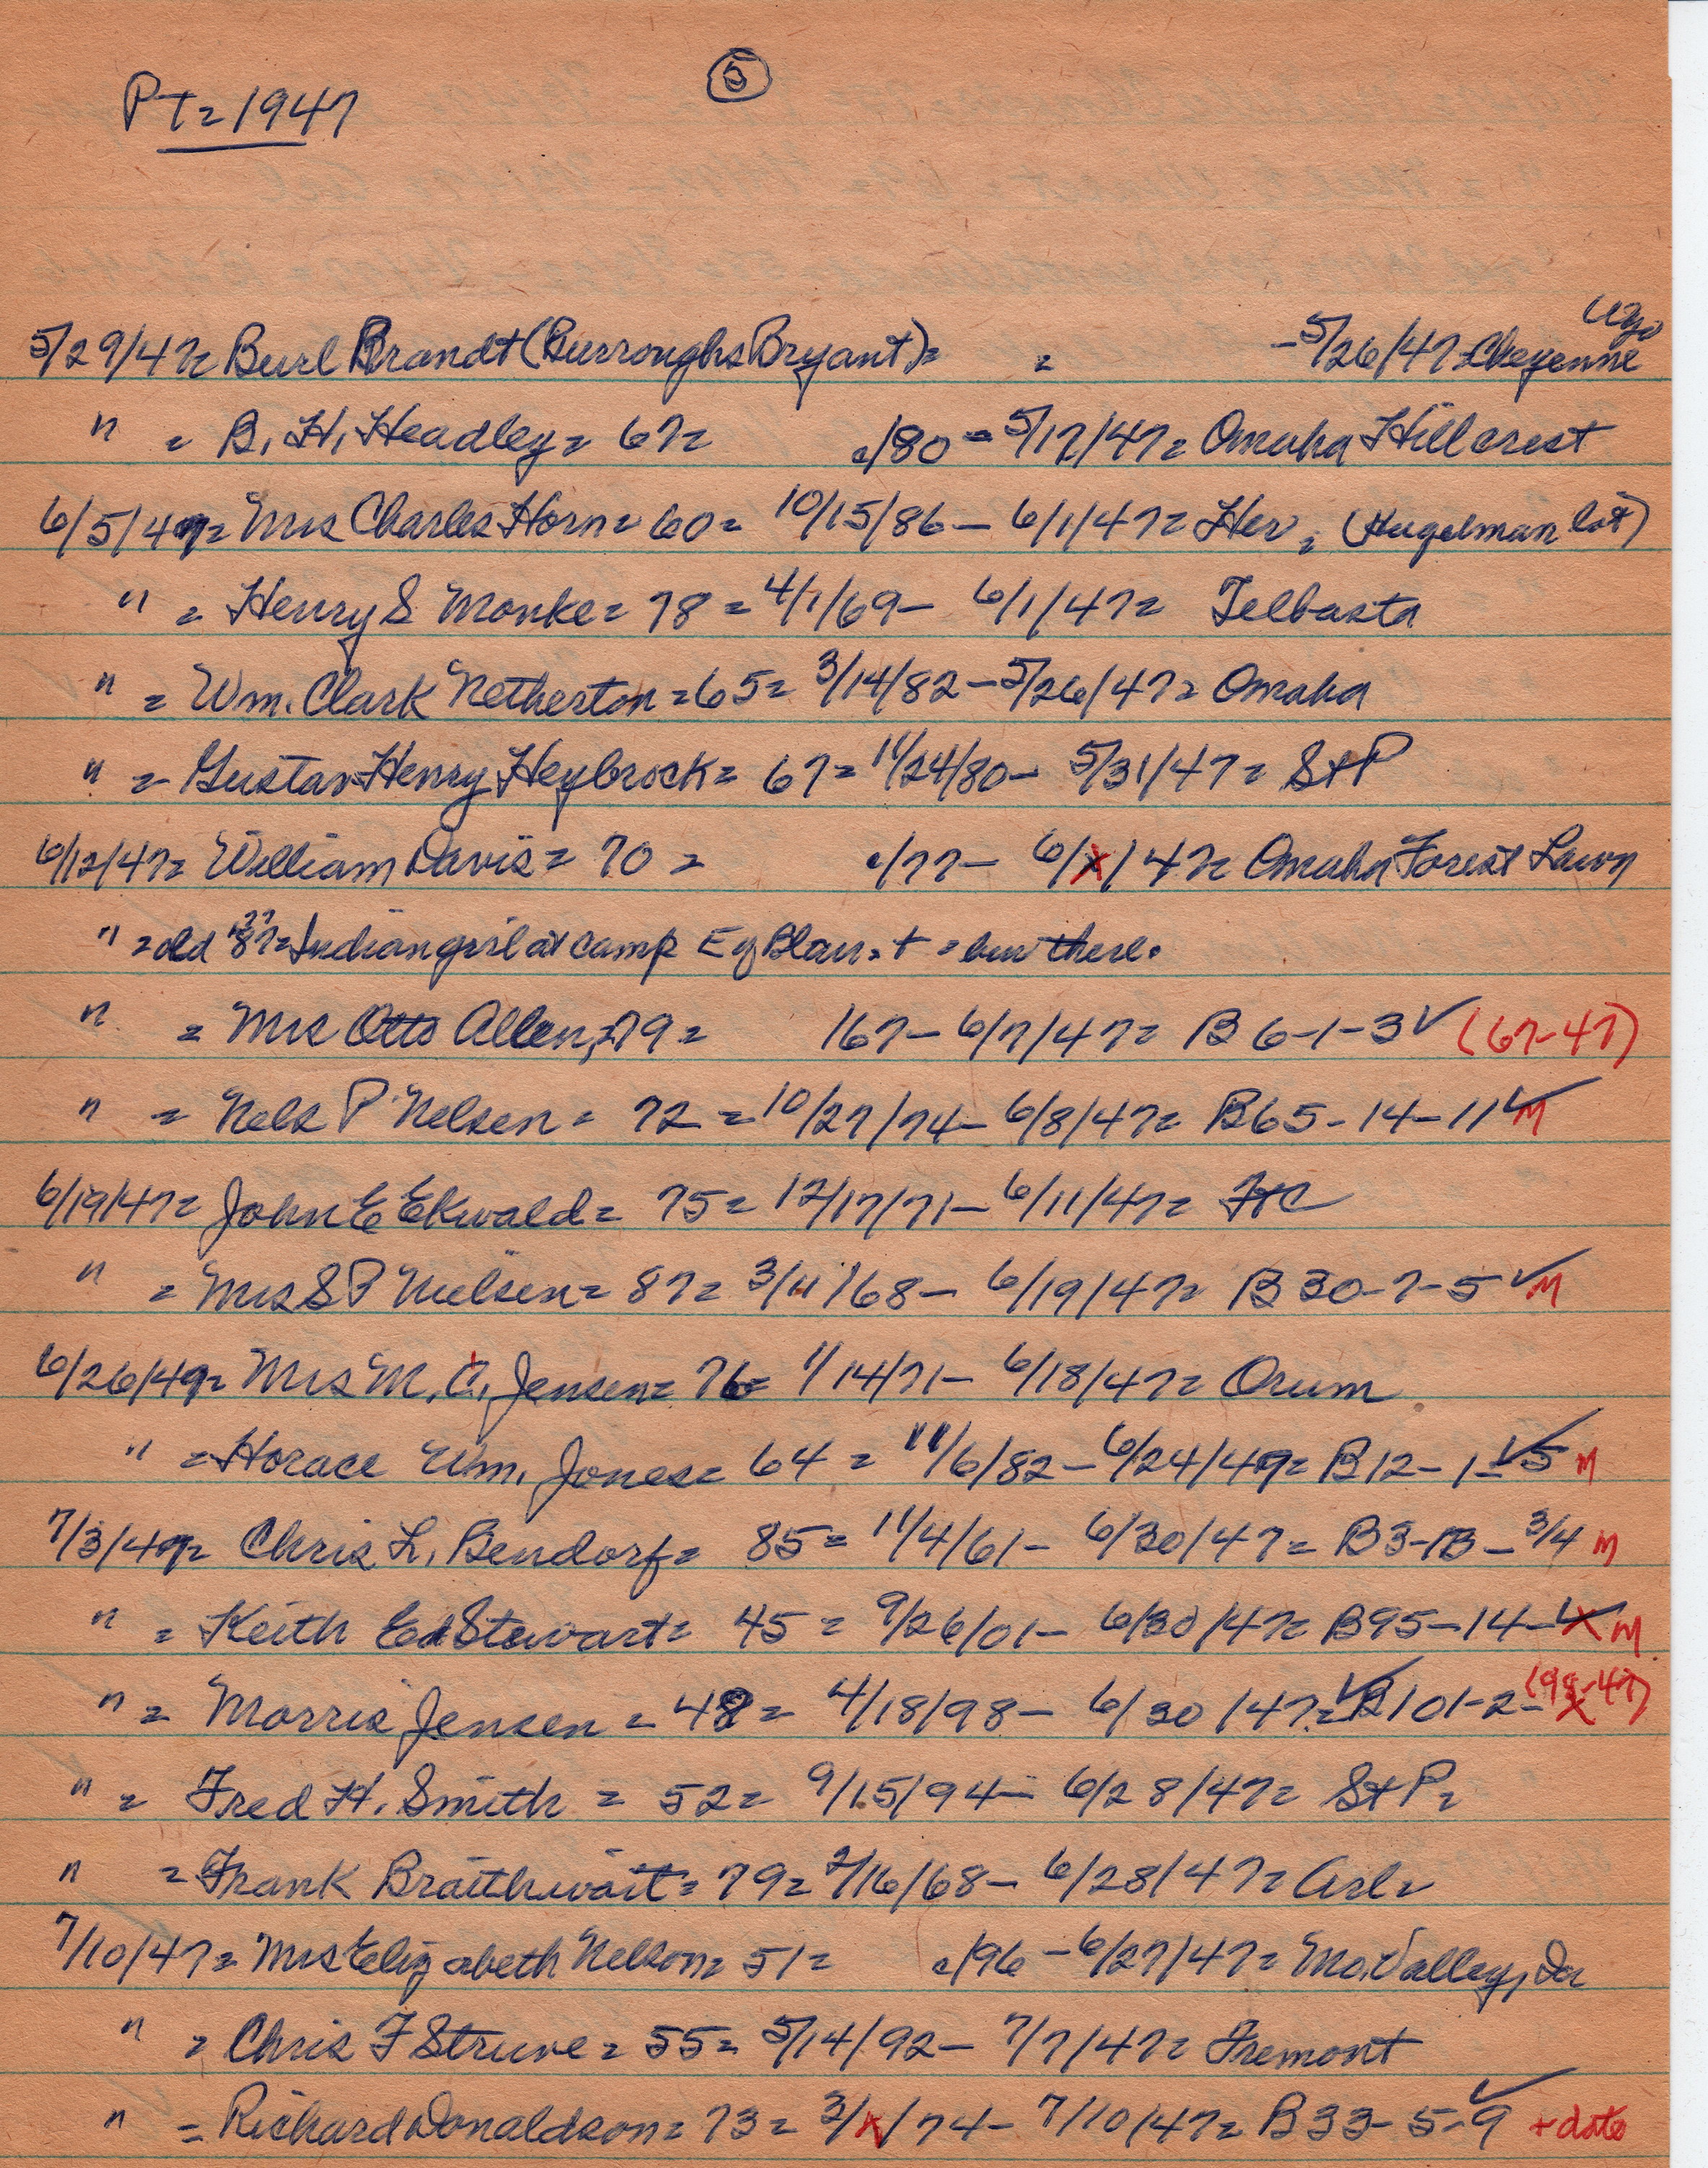 5
PT = 1947
Wyo
5/29/47 = Burl Brandt (Burroughs Bryant) = = - 5/26/47 = Cheyenne
" = B. H. Headley = 67 = c/80 = 5/17/47 = Omaha Hillcrest
6/5/47 = Mrs Charles Horn = 60 = 10/15/86 - 6/1/47 = Her = (Hugelman lot)
" = Henry S Monke = 78 = 4/1/69 - 6/1/47 = Telbasta
" = Wm. Clark Netherton = 65 = 3/14/82 - 5/26/47 = Omaha
" = Gustav Henry Heybrock = 67 = 11/24/80 - 5/31/47 = St P
6/12/47 = William Davis = 70 = c/77 - 6/x/47 = Omaha Forest Lawn
" = old '87 = Indian girl at camp = t = bur there.
" = Mrs Otto Allen, = 79 = /67 - 6/7/47 = B 6-1-3 ✓ (67-47)
" = Nels P Nelsen = 72 = 10/27/74 - 6/8/47 = B65-14-11 ✓ M
6/19/47 = John E Ekwald = 75 = 12/17/71 - 6/11/47 = FtC
" = Mrs S P Nielsen = 87 = 3/11/68 - 6/19/47 = B 30-7-5 ✓ M
6/26/47 = Mrs M. C. Jensen = 76 = 1/14/71 - 6/18/47 = Orum
" = Horace Wm. Jones = 64 = 11/6/82 - 6/24/47 = B12-1-5 ✓ M
7/3/47 = Chris L. Bendorf = 85 = 11/4/61 - 6/30/47 = B3-13-3/4 M
" = Keith Ed Stewart = 45 = 9/26/01 - 6/30/47 = B95-14-x ✓ M
" = Morris Jensen = 48 = 4/18/98 - 6/30/47 = ✓ B101-2-x (98-47)
" = Fred H. Smith = 52 = 9/15/94 - 6/28/47 = St P =
" = Frank Braithwait = 79 = 2/16/68 - 6/28/47 = Arl =
7/10/47 = Mrs Elizabeth Nelson = 51 = c/96 - 6/27/47 = Mo. Valley, Ia
" = Chris F Struve = 55 = 5/14/92 - 7/7/47 = Fremont
" = Richard Donaldson = 73 = 3/x/74 - 7/10/47 = B33-5-9 ✓ + date